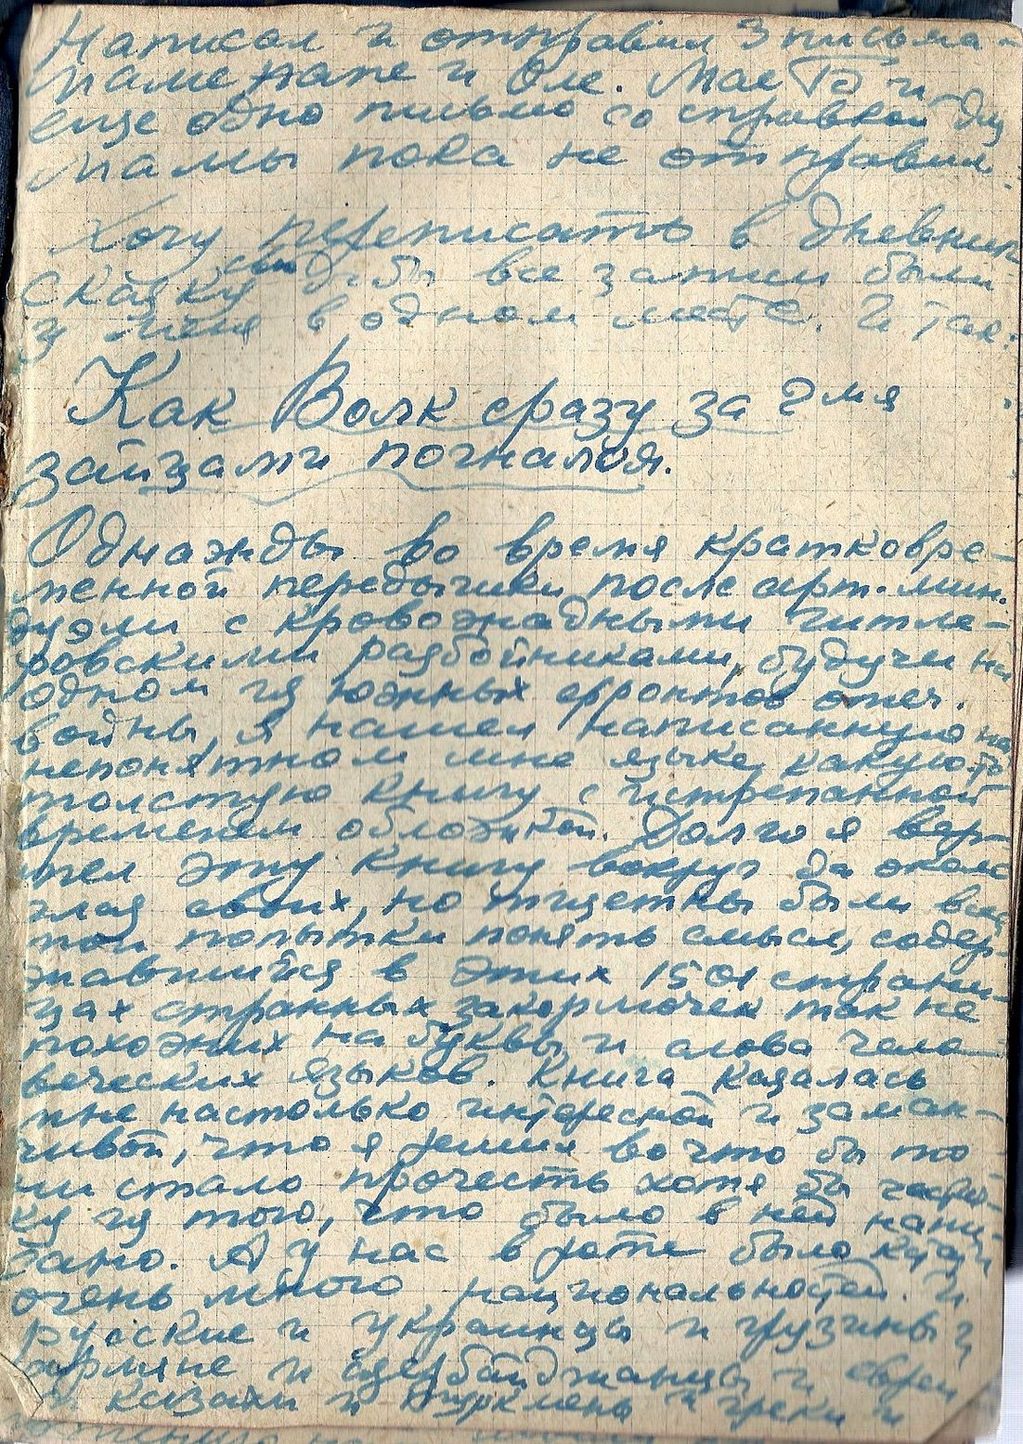 Написал и отправил 3 письма –
маме папе и Оле.
еще одно письмо со справкой для
мамы пока не отправил.
Хочу переписать в дневник
сказку свою д-бы все записи были
у меня в одном месте. Итак:
Как Волк сразу за 2мя
зайцами погнался.
Однажды во время кратковре-
менной передышки после арт. мин.
дуэли с кровожадными гитле-
ровскими разбойниками, будучи на
одном из южных фронтов отеч.
войны, я нашел написанную на
непонятном мне языке какую то
толстую книгу с истрепанной
временем обложкой. Долго я вер-
тел эту книгу вокруг да около
глаз своих, но тщетны были
мои попытки понять смысл, содер-
жавшийся в этих 1501 страни-
цах странных закорючек так не
похожих на буквы и слова чело-
веческих языков. Книга казалась
мне настолько интересной и заман-
чивой, что я решил во что бы то
ни стало прочесть хотя бы
из того, что было в ней напи-
сано. А у нас в роте было
очень много национальностей. И
русские и украинцы и грузины и
армяне и азербайджанцы и евреи
и казахи и туркмены и греки и